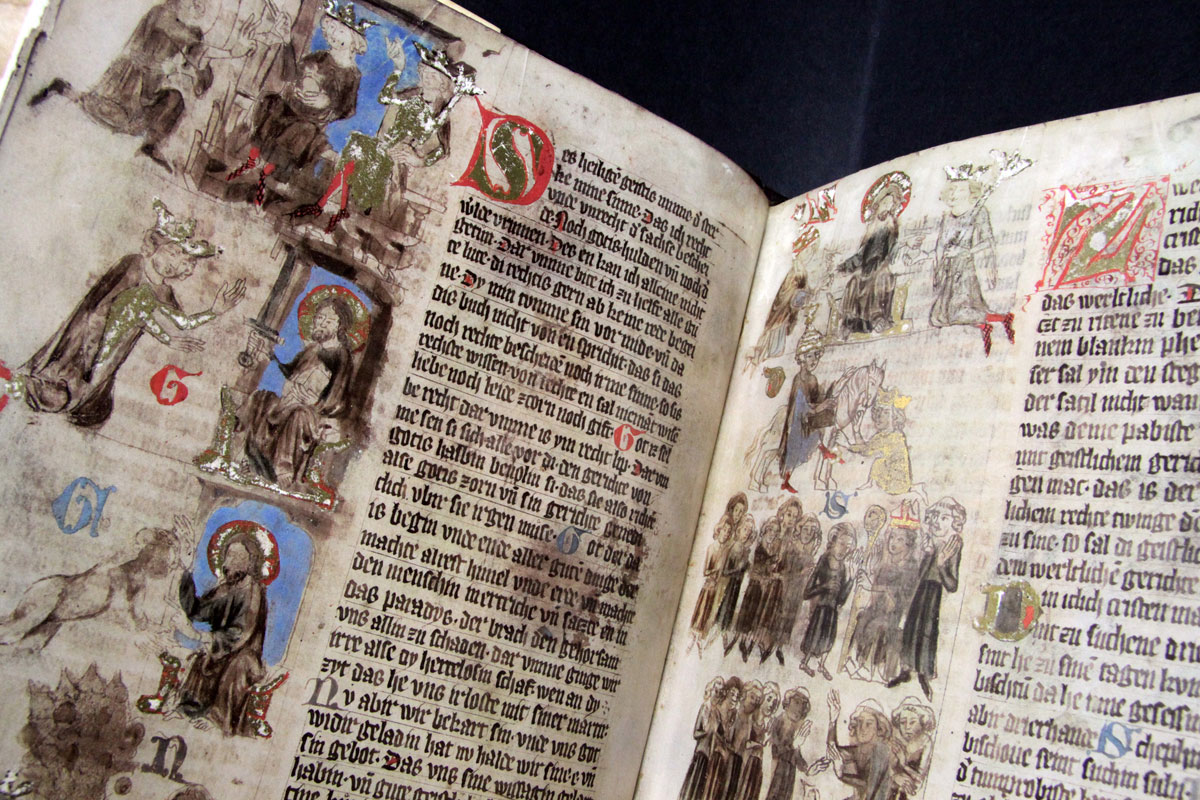 G
G
N
Des heiligē geistis minne d' ster
ke mine sinne. Das ich recht
vnde vnrecht d' sachse beschei
de Noch gotis hulden vñ noch d'
w'lde vrumen. Des en kan ich alleine nicht
getun. Dar vmme bitte ich zu helfe alle gu
te lute. di rechtis gern ab keine rede begei
ne. Dy min tumme sin vormide. vñ da
dis buch nicht von en spricht. das si das
noch rechte bescheidē noch irme sinne. so sis
rechste wissen. von rechte en sal nimāt wise
liebe noch leide zorn noch gift. Got is sel
be recht dar vmme is ym recht lip. Dar vm
me sen si sich alle vor di den gerichte von
gotis halbin beuolin si. das sie also richte
alse gotis zorn vñ sin gerichte genedi
clich vber sie irgen muse. Got der da
is begin vnde ende aller gutē dinge der
machte alrest himel vnde erde vñ machte
den menschin in ertriche vñ satzte en in
das paradys. der brach den gehorsam
vns allin zu schaden. dar vmme ginge wir
irre alse dy hertelosin schaf. wen an dy
zyt das he vns irloste mit siner marter
Ny abir wir bekart sin. vnde vns got
widir geladin hat ny halde wir sine e vñ
sin gebot. Das vns sine wissagin gelar
habin. vñ gute
S
crist
das
das werltliche.
czt zu ritene zu
nem blankin phe
ser sal ym den steg
der satil nicht
was deme pabiste
mit geistlichem gerich
gen mac. das is der
lichem rechte twinge
zu sine. so sal di geistl
dem werltlichē gerichte
Din iclich cristen ma
nt zu suchene dri
sint he zu sinē tagen
bischtū da he inne gesessi
abir drierhande Schephin
bischoue sent suchin sul
d' tumprobiste